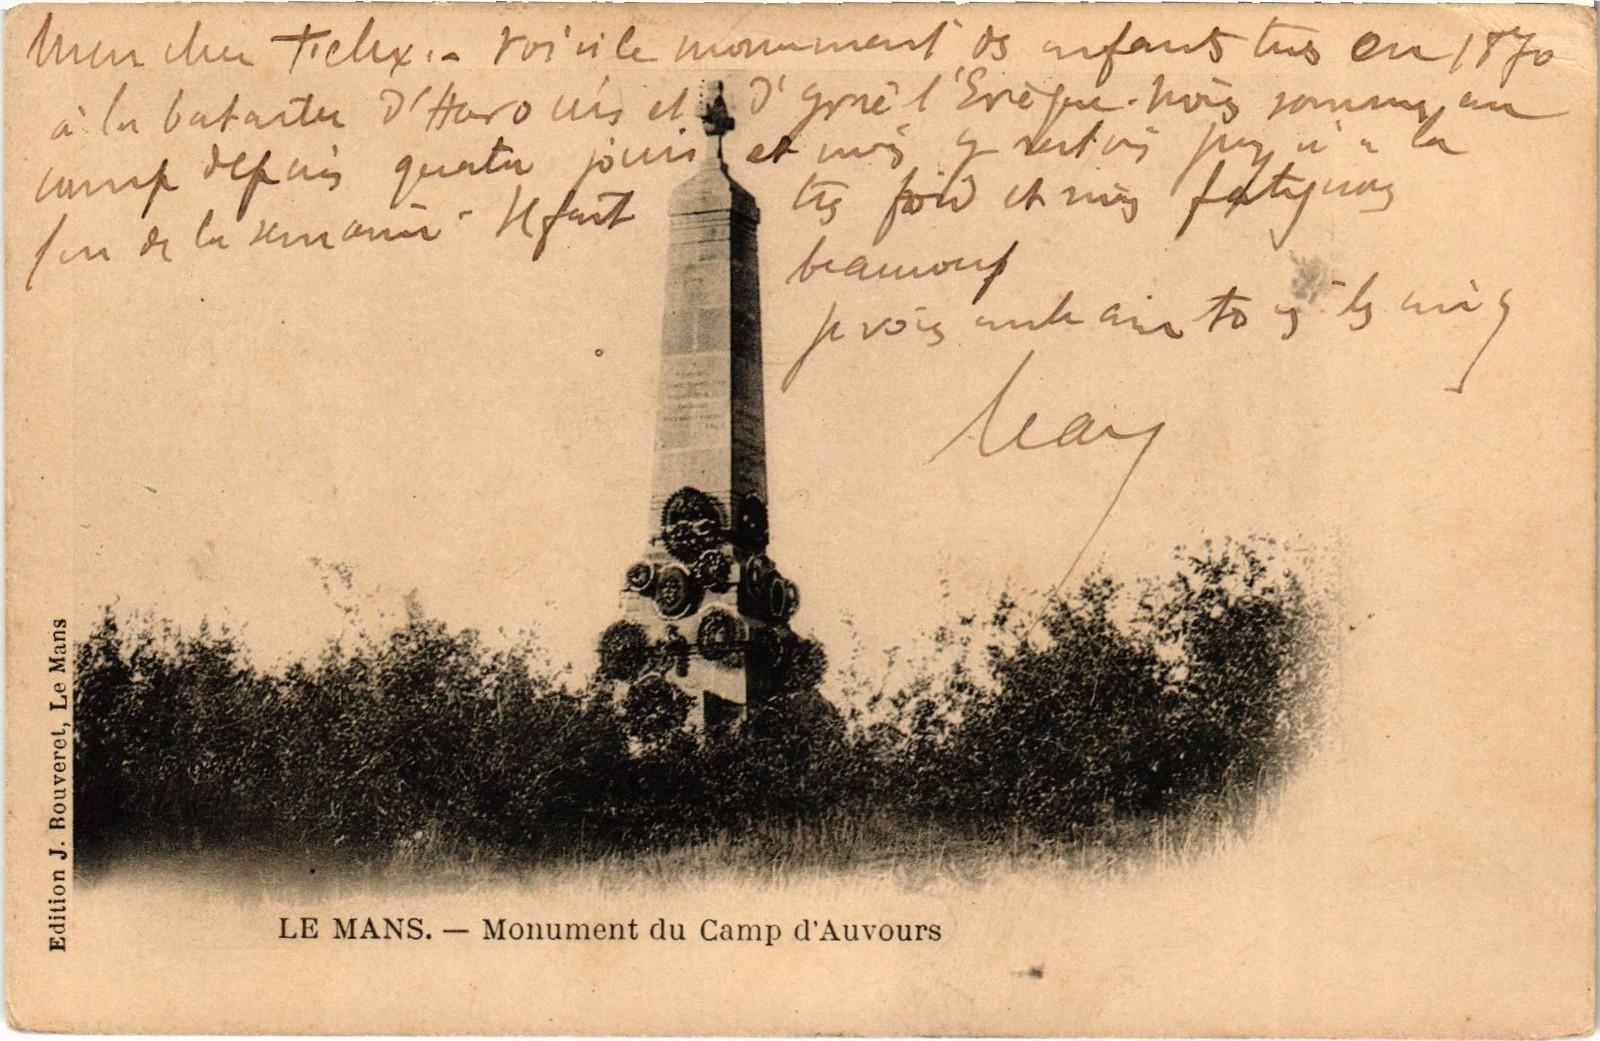 Mon cher Felix. - Voici le monument des enfants tués en 1870
à la bataille d'Auvours et d'Yvré l'Evêque. Nous sommes au
camp depuis quatre jours et nous y restons jusqu'à la
fin de la semaine. Il fait très froid et nous fatiguons
beaucoup
Je vois
LE MANS. — Monument du Camp d'Auvours
Edition J. Bouveret, Le Mans